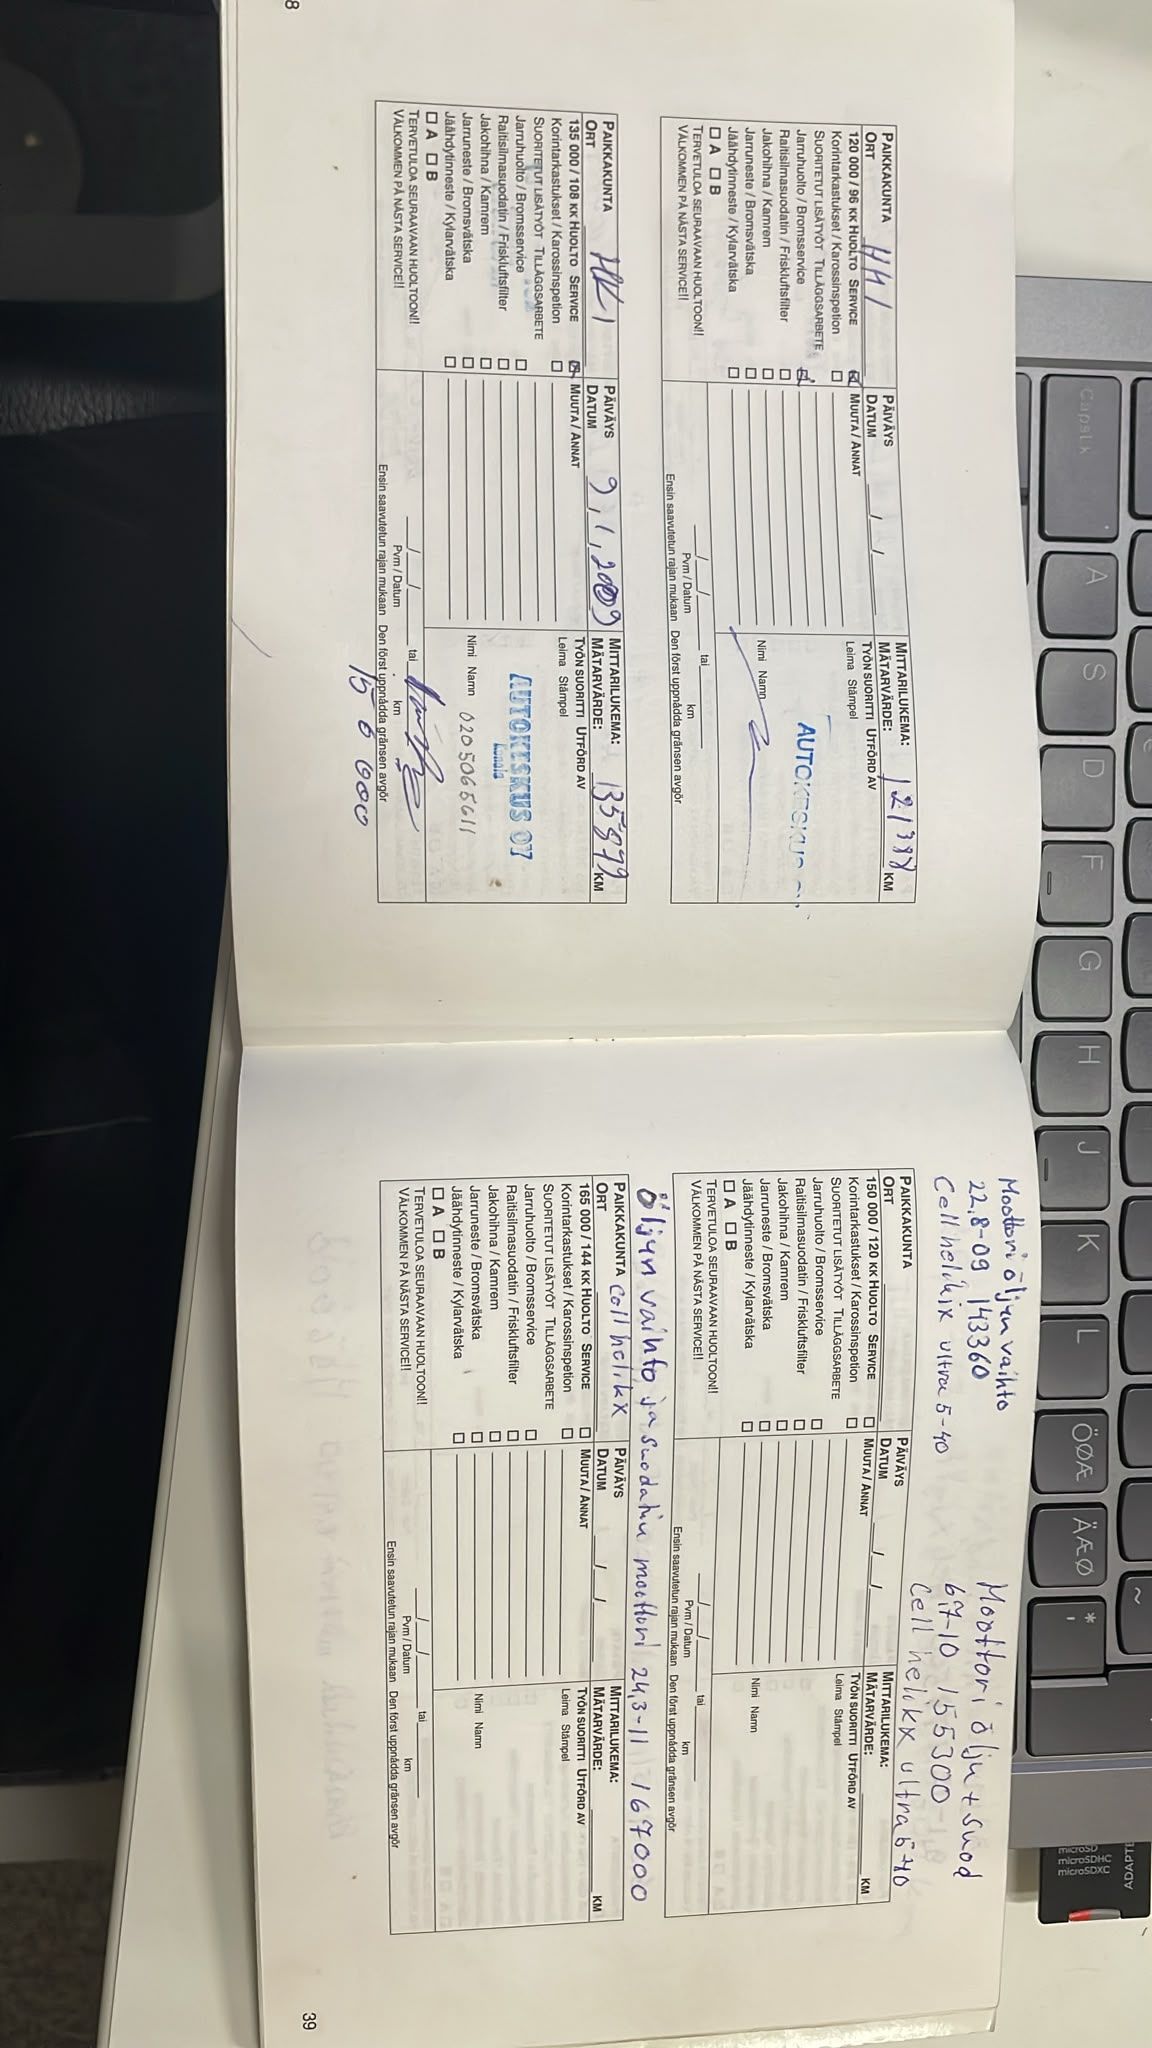 8
PAIKKAKUNTA
ORT
HKI
PÄIVÄYS
DATUM / /
MITTARILUKEMA:
MÄTARVÄRDE: KM
120 000 / 96 KK HUOLTO SERVICE
Korintarkastukset / Karossinspetion
SUORITETUT LISÄTYÖT TILLÄGGSARBETE
Jarruhuolto / Bromsservice
Raitisilmasuodatin / Friskluftsfilter
Jakohihna / Kamrem
Jarruneste / Bromsvätska
Jäähdytinneste / Kylarvätska
A B
MUUTA / ANNAT
TYÖN SUORITTI UTFÖRD AV
Leima Stämpel
AUTOKESKUS
Nimi Namn
TERVETULOA SEURAAVAAN HUOLTOON!!
VÄLKOMMEN PÅ NÄSTA SERVICE!!
/ / tai km
Pvm / Datum
Ensin saavutetun rajan mukaan Den först uppnådda gränsen avgör
PAIKKAKUNTA
ORT
HKI
PÄIVÄYS
DATUM 9.1.2009
MITTARILUKEMA:
MÄTARVÄRDE: 135879 KM
135 000 / 108 KK HUOLTO SERVICE
Korintarkastukset / Karossinspetion
SUORITETUT LISÄTYÖT TILLÄGGSARBETE
Jarruhuolto / Bromsservice
Raitisilmasuodatin / Friskluftsfilter
Jakohihna / Kamrem
Jarruneste / Bromsvätska
Jäähdytinneste / Kylarvätska
A B
MUUTA / ANNAT
TYÖN SUORITTI UTFÖRD AV
Leima Stämpel
AUTOKESKUS OY
Konala
Nimi Namn 0205065611
TERVETULOA SEURAAVAAN HUOLTOON!!
VÄLKOMMEN PÅ NÄSTA SERVICE!!
/ / tai km
Pvm / Datum
Ensin saavutetun rajan mukaan Den först uppnådda gränsen avgör
Moottori öljyn vaihto
22.8-09 143360
Cell helikix ultra 5-40
Moottori öljy + suod
6.7-10 155300
Cell helikx ultra 5-40
PAIKKAKUNTA
ORT
PÄIVÄYS
DATUM / /
MITTARILUKEMA:
MÄTARVÄRDE: KM
150 000 / 120 KK HUOLTO SERVICE
Korintarkastukset / Karossinspetion
SUORITETUT LISÄTYÖT TILLÄGGSARBETE
Jarruhuolto / Bromsservice
Raitisilmasuodatin / Friskluftsfilter
Jakohihna / Kamrem
Jarruneste / Bromsvätska
Jäähdytinneste / Kylarvätska
A B
MUUTA / ANNAT
TYÖN SUORITTI UTFÖRD AV
Leima Stämpel
Nimi Namn
TERVETULOA SEURAAVAAN HUOLTOON!!
VÄLKOMMEN PÅ NÄSTA SERVICE!!
/ / tai km
Pvm / Datum
Ensin saavutetun rajan mukaan Den först uppnådda gränsen avgör
Öljyn vaihto ja suodatin moottori 24.3-11 167000
Cell helikx
PAIKKAKUNTA
ORT
PÄIVÄYS
DATUM / /
MITTARILUKEMA:
MÄTARVÄRDE: KM
165 000 / 144 KK HUOLTO SERVICE
Korintarkastukset / Karossinspetion
SUORITETUT LISÄTYÖT TILLÄGGSARBETE
Jarruhuolto / Bromsservice
Raitisilmasuodatin / Friskluftsfilter
Jakohihna / Kamrem
Jarruneste / Bromsvätska
Jäähdytinneste / Kylarvätska
A B
MUUTA / ANNAT
TYÖN SUORITTI UTFÖRD AV
Leima Stämpel
Nimi Namn
TERVETULOA SEURAAVAAN HUOLTOON!!
VÄLKOMMEN PÅ NÄSTA SERVICE!!
/ / tai km
Pvm / Datum
Ensin saavutetun rajan mukaan Den först uppnådda gränsen avgör
39
A S D F G H J K L ÖØÆ ÄÆØ * '
~
microSD
microSDHC
microSDXC